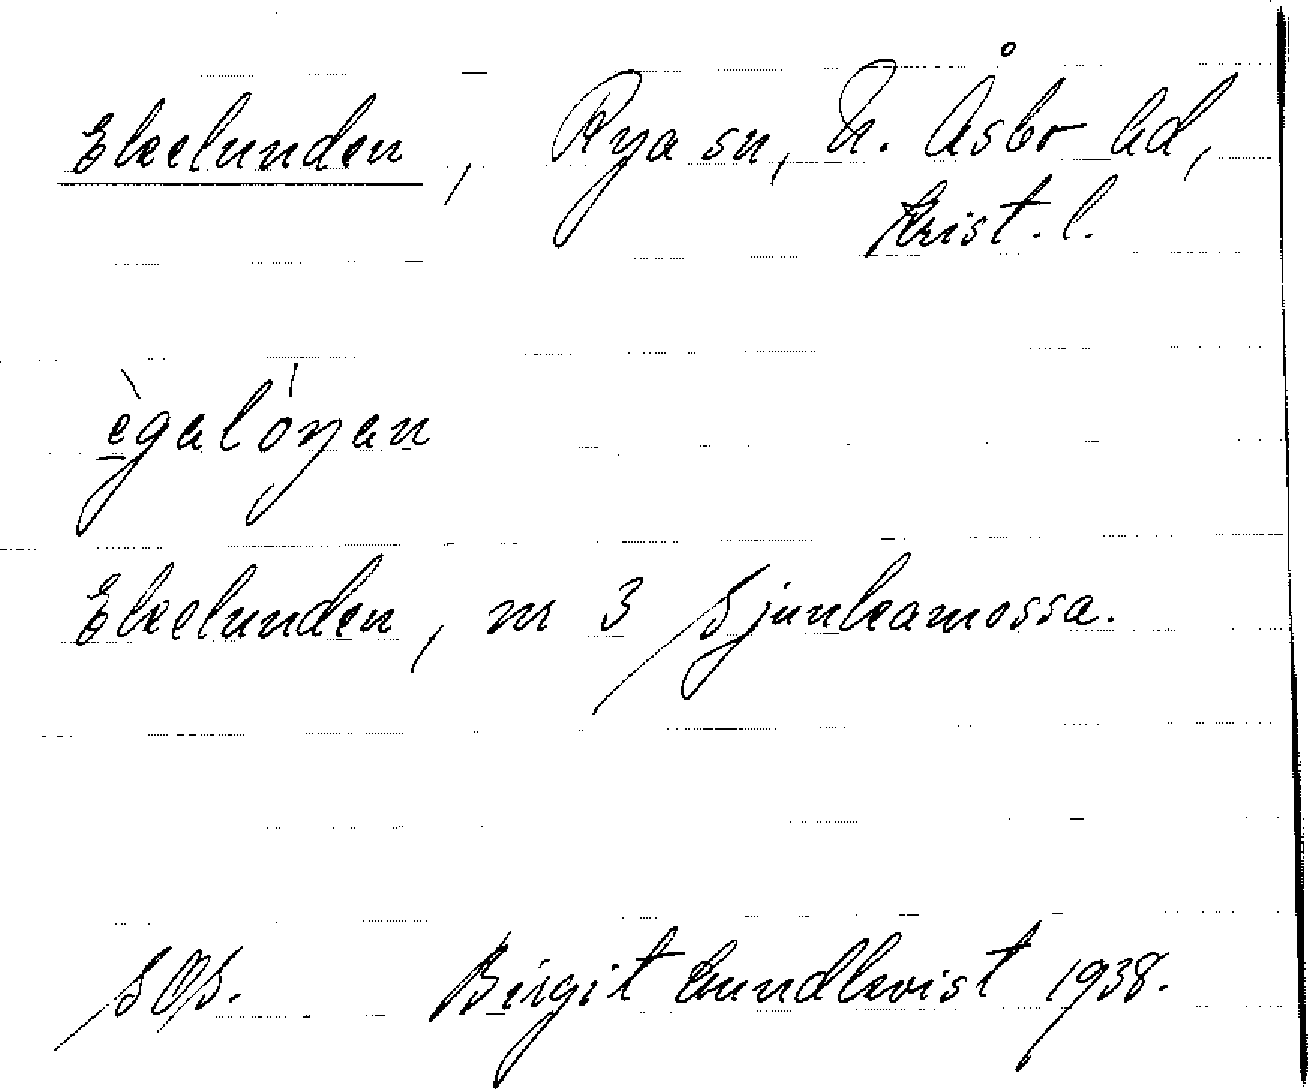 Ekelunden, Rya sn, N. Åsbo hd,
Krist. l.
ègalóŋan
Ekelunden, nr 3 Sjunkamossa.
SOS. Birgit Lundkvist 1938.